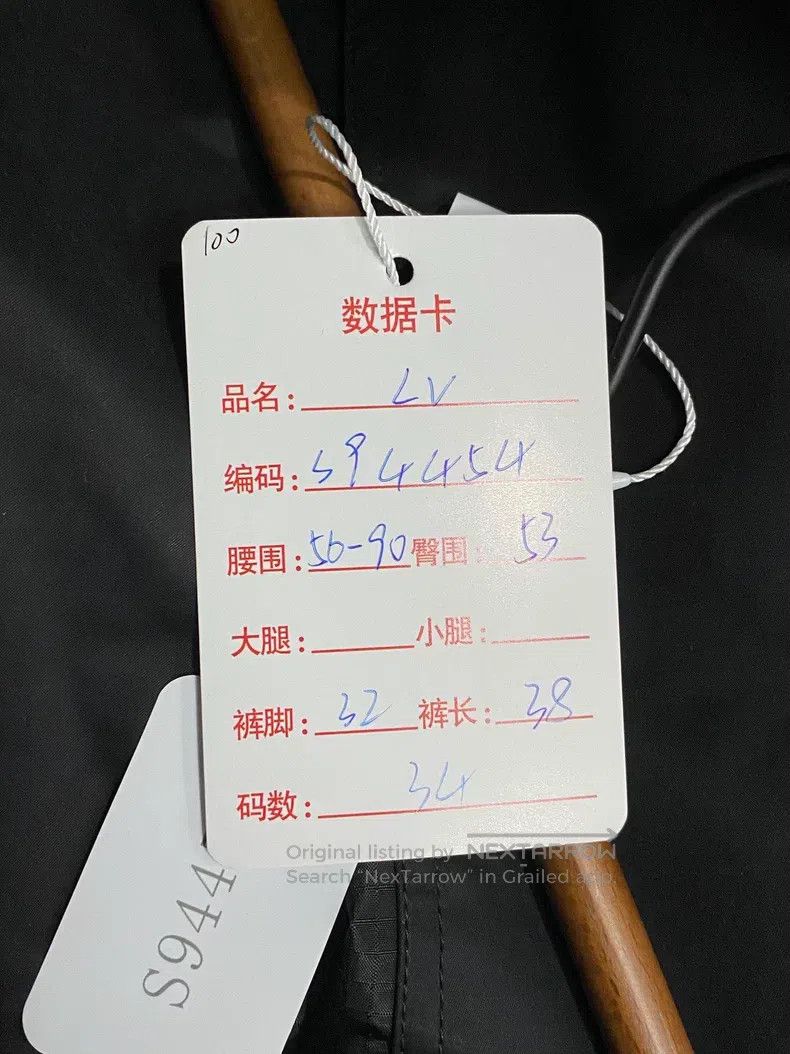 100
数据卡
品名: LV
编码: 594454
腰围: 56-90 臀围: 53
大腿: 小腿:
裤脚: 32 裤长: 38
码数: 34
Original listing by NEXTARROW
Search "NexTarrow" in Grailed app.
S944